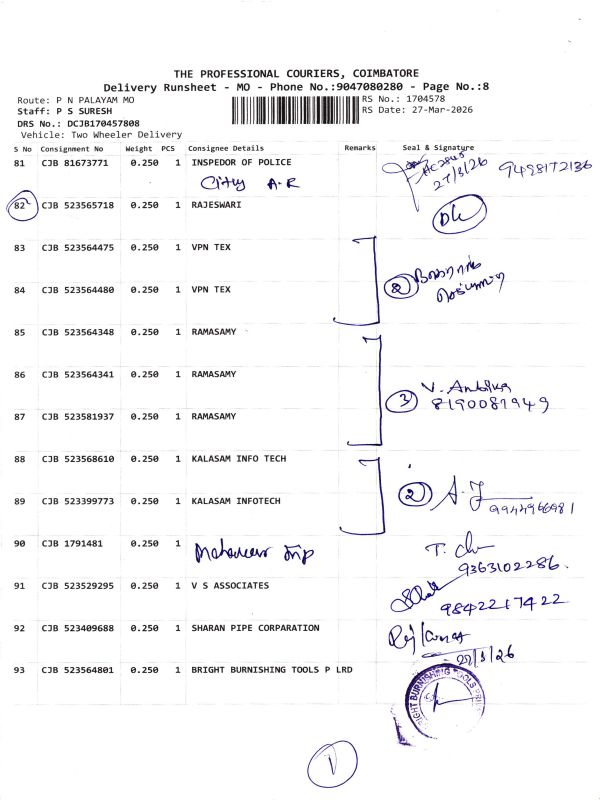 THE PROFESSIONAL COURIERS, COIMBATORE
Delivery Runsheet - MO - Phone No.:9047080280 - Page No.:8
Route: P N PALAYAM MO
RS No.: 1704578
Staff: P S SURESH
RS Date: 27-Mar-2026
DRS No.: DCJB170457808
Vehicle: Two Wheeler Delivery
S No Consignment No Weight PCS Consignee Details Remarks Seal & Signature
81 CJB 81673771 0.250 1 INSPEDOR OF POLICE HC2845 27/3/26 9498172136
City A.R
82 CJB 523565718 0.250 1 RAJESWARI
83 CJB 523564475 0.250 1 VPN TEX
2
84 CJB 523564480 0.250 1 VPN TEX
85 CJB 523564348 0.250 1 RAMASAMY
86 CJB 523564341 0.250 1 RAMASAMY
3 V. Ambika
8190081949
87 CJB 523581937 0.250 1 RAMASAMY
88 CJB 523568610 0.250 1 KALASAM INFO TECH
2
89 CJB 523399773 0.250 1 KALASAM INFOTECH
9944966981
90 CJB 1791481 0.250 1
9363102286.
91 CJB 523529295 0.250 1 V S ASSOCIATES
9842217422
92 CJB 523409688 0.250 1 SHARAN PIPE CORPARATION
27/3/26
93 CJB 523564801 0.250 1 BRIGHT BURNISHING TOOLS P LRD
1